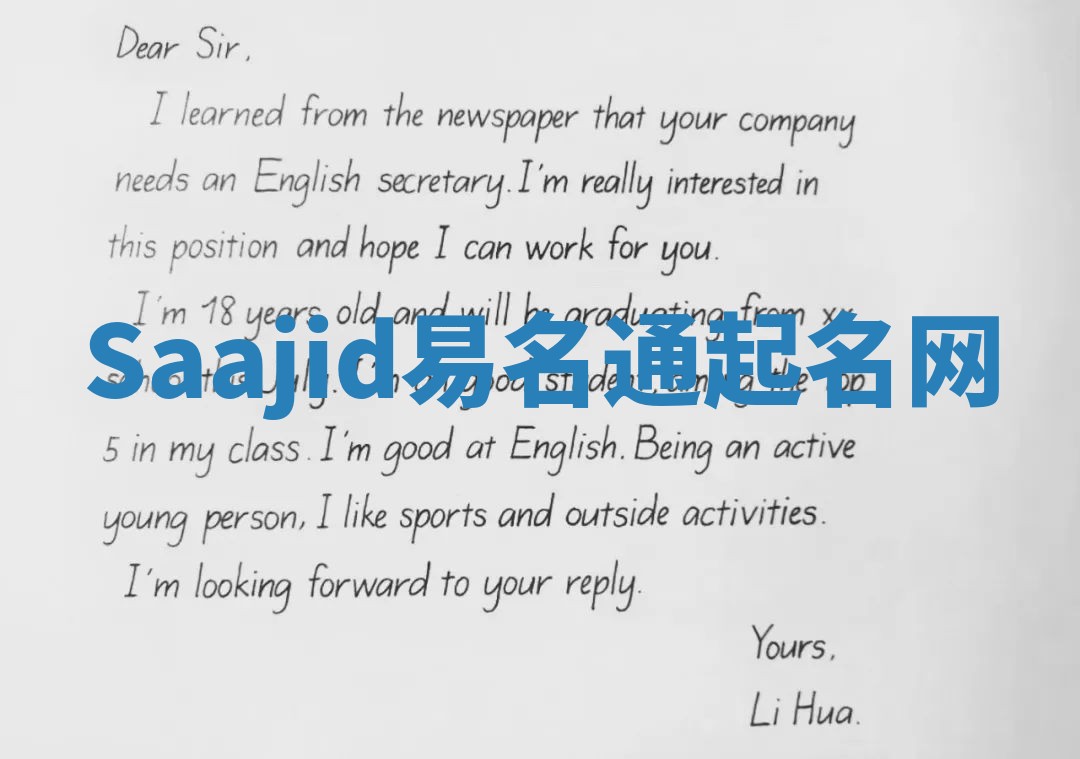 Dear Sir,
I learned from the newspaper that your company
needs an English secretary. I'm really interested in
this position and hope I can work for you.
I'm 18 years old and will be graduating from xx
Saajid易名通起名网
school this July. I'm a good student, among the top
5 in my class. I'm good at English. Being an active
young person, I like sports and outside activities.
I'm looking forward to your reply.
Yours,
Li Hua.